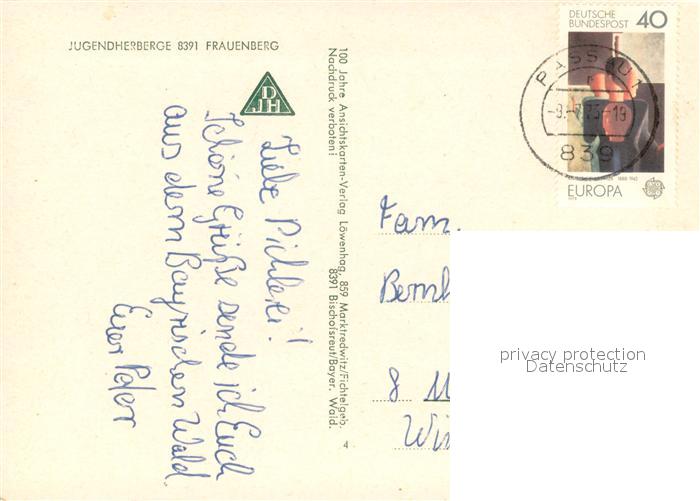 JUGENDHERBERGE 8391 FRAUENBERG
DJH
Liebe Pichleri!
Schöne Grüße sende ich Euch
aus dem Bayrischen Wald
Euer Peter
100 Jahre Ansichtskarten-Verlag Löwenhag, 859 Marktredwitz/Fichtelgeb.
Nachdruck verboten! 8391 Bischofsreut/Bayer. Wald.
4
DEUTSCHE
BUNDESPOST 40
PASSAU 1
-9.-7.75-19
839
1888-1943
EUROPA
Fam.
8
privacy protection
Datenschutz